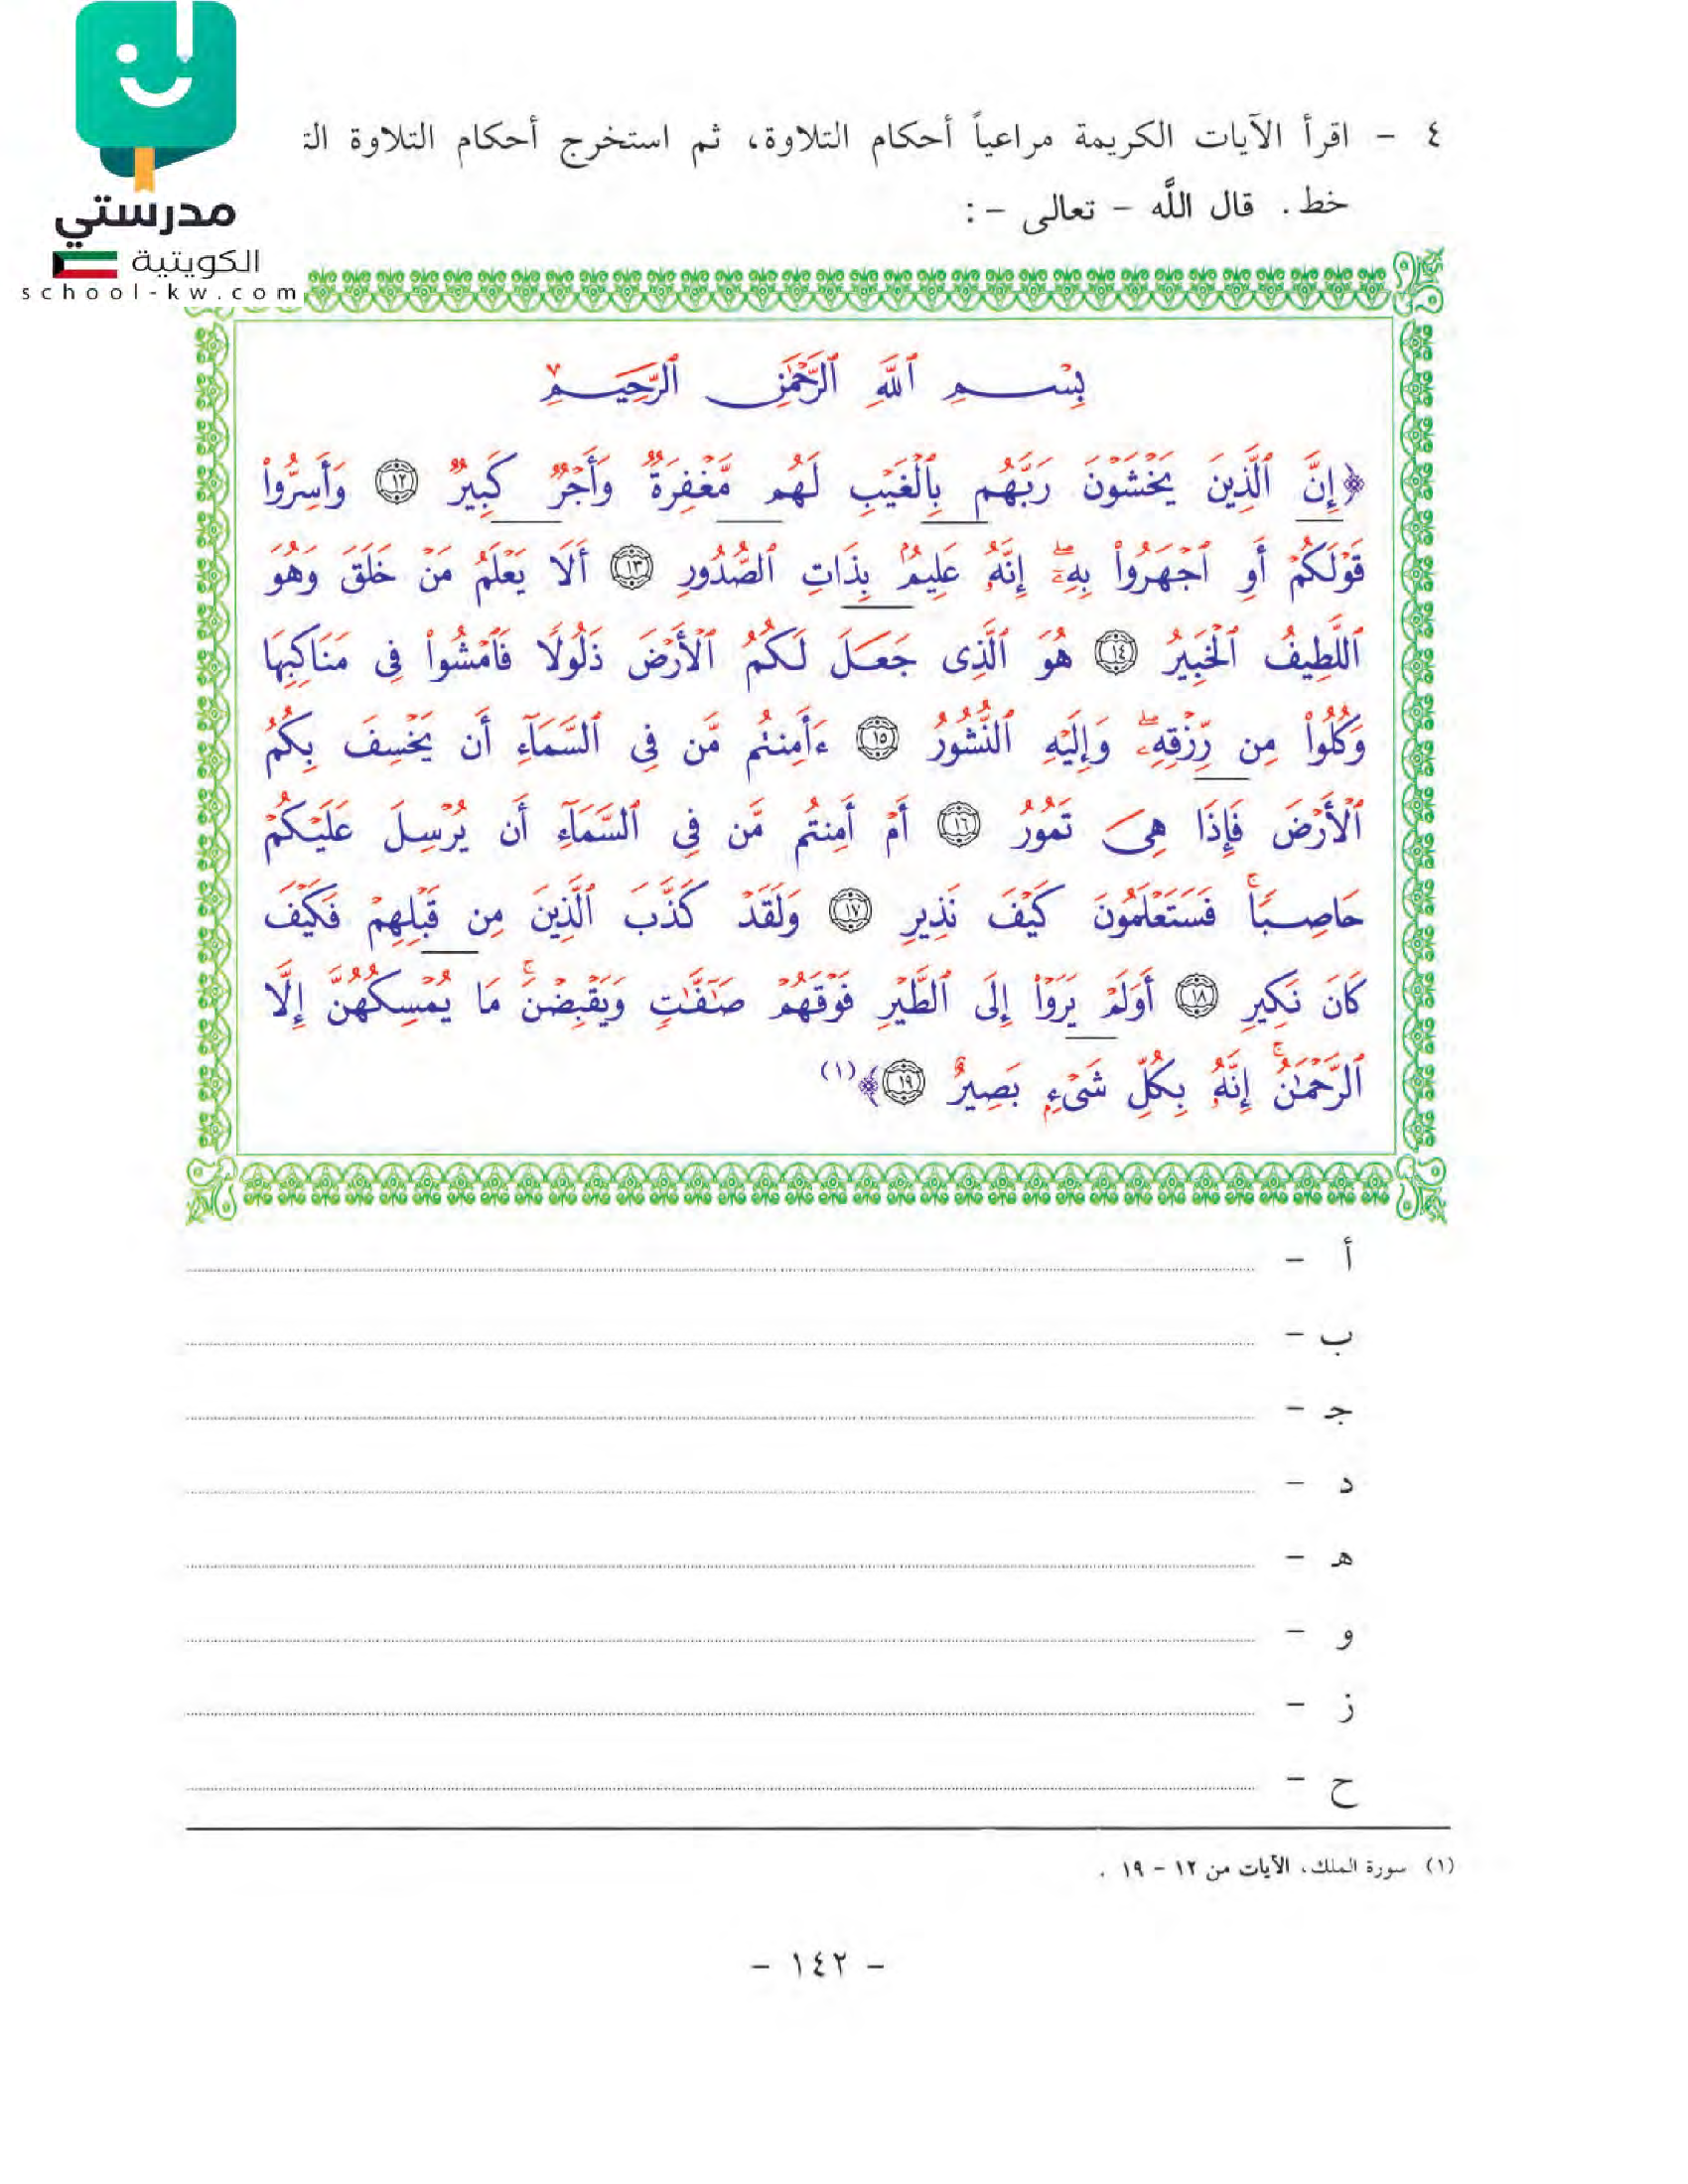 مدرستي
الكويتية
school-kw.com
٤ - اقرأ الآيات الكريمة مراعياً أحكام التلاوة، ثم استخرج أحكام التلاوة
خط. قال اللَّه - تعالى - :
بِسْمِ ٱللَّهِ ٱلرَّحْمَٰنِ ٱلرَّحِيمِ
﴿إِنَّ ٱلَّذِينَ يَخْشَوْنَ رَبَّهُم بِٱلْغَيْبِ لَهُم مَّغْفِرَةٌ وَأَجْرٌ كَبِيرٌ ١٢ وَأَسِرُّوا۟
قَوْلَكُمْ أَوِ ٱجْهَرُوا۟ بِهِۦٓ ۖ إِنَّهُۥ عَلِيمٌۢ بِذَاتِ ٱلصُّدُورِ ١٣ أَلَا يَعْلَمُ مَنْ خَلَقَ وَهُوَ
ٱللَّطِيفُ ٱلْخَبِيرُ ١٤ هُوَ ٱلَّذِى جَعَلَ لَكُمُ ٱلْأَرْضَ ذَلُولًا فَٱمْشُوا۟ فِى مَنَاكِبِهَا
وَكُلُوا۟ مِن رِّزْقِهِۦ ۖ وَإِلَيْهِ ٱلنُّشُورُ ١٥ ءَأَمِنتُم مَّن فِى ٱلسَّمَآءِ أَن يَخْسِفَ بِكُمُ
ٱلْأَرْضَ فَإِذَا هِىَ تَمُورُ ١٦ أَمْ أَمِنتُم مَّن فِى ٱلسَّمَآءِ أَن يُرْسِلَ عَلَيْكُمْ
حَاصِبًا ۖ فَسَتَعْلَمُونَ كَيْفَ نَذِيرِ ١٧ وَلَقَدْ كَذَّبَ ٱلَّذِينَ مِن قَبْلِهِمْ فَكَيْفَ
كَانَ نَكِيرِ ١٨ أَوَلَمْ يَرَوْا۟ إِلَى ٱلطَّيْرِ فَوْقَهُمْ صَٰٓفَّٰتٍ وَيَقْبِضْنَ ۚ مَا يُمْسِكُهُنَّ إِلَّا
ٱلرَّحْمَٰنُ ۚ إِنَّهُۥ بِكُلِّ شَىْءٍۭ بَصِيرٌ ١٩﴾(١)
أ -
ب -
جـ -
د -
هـ -
و -
ز -
ح -
(١) سورة الملك، الآيات من ١٢ - ١٩ .
- ١٤٢ -